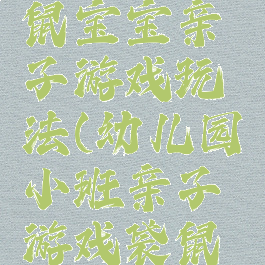 鼠宝宝亲
子游戏玩
法(幼儿园
小班亲子
游戏袋鼠